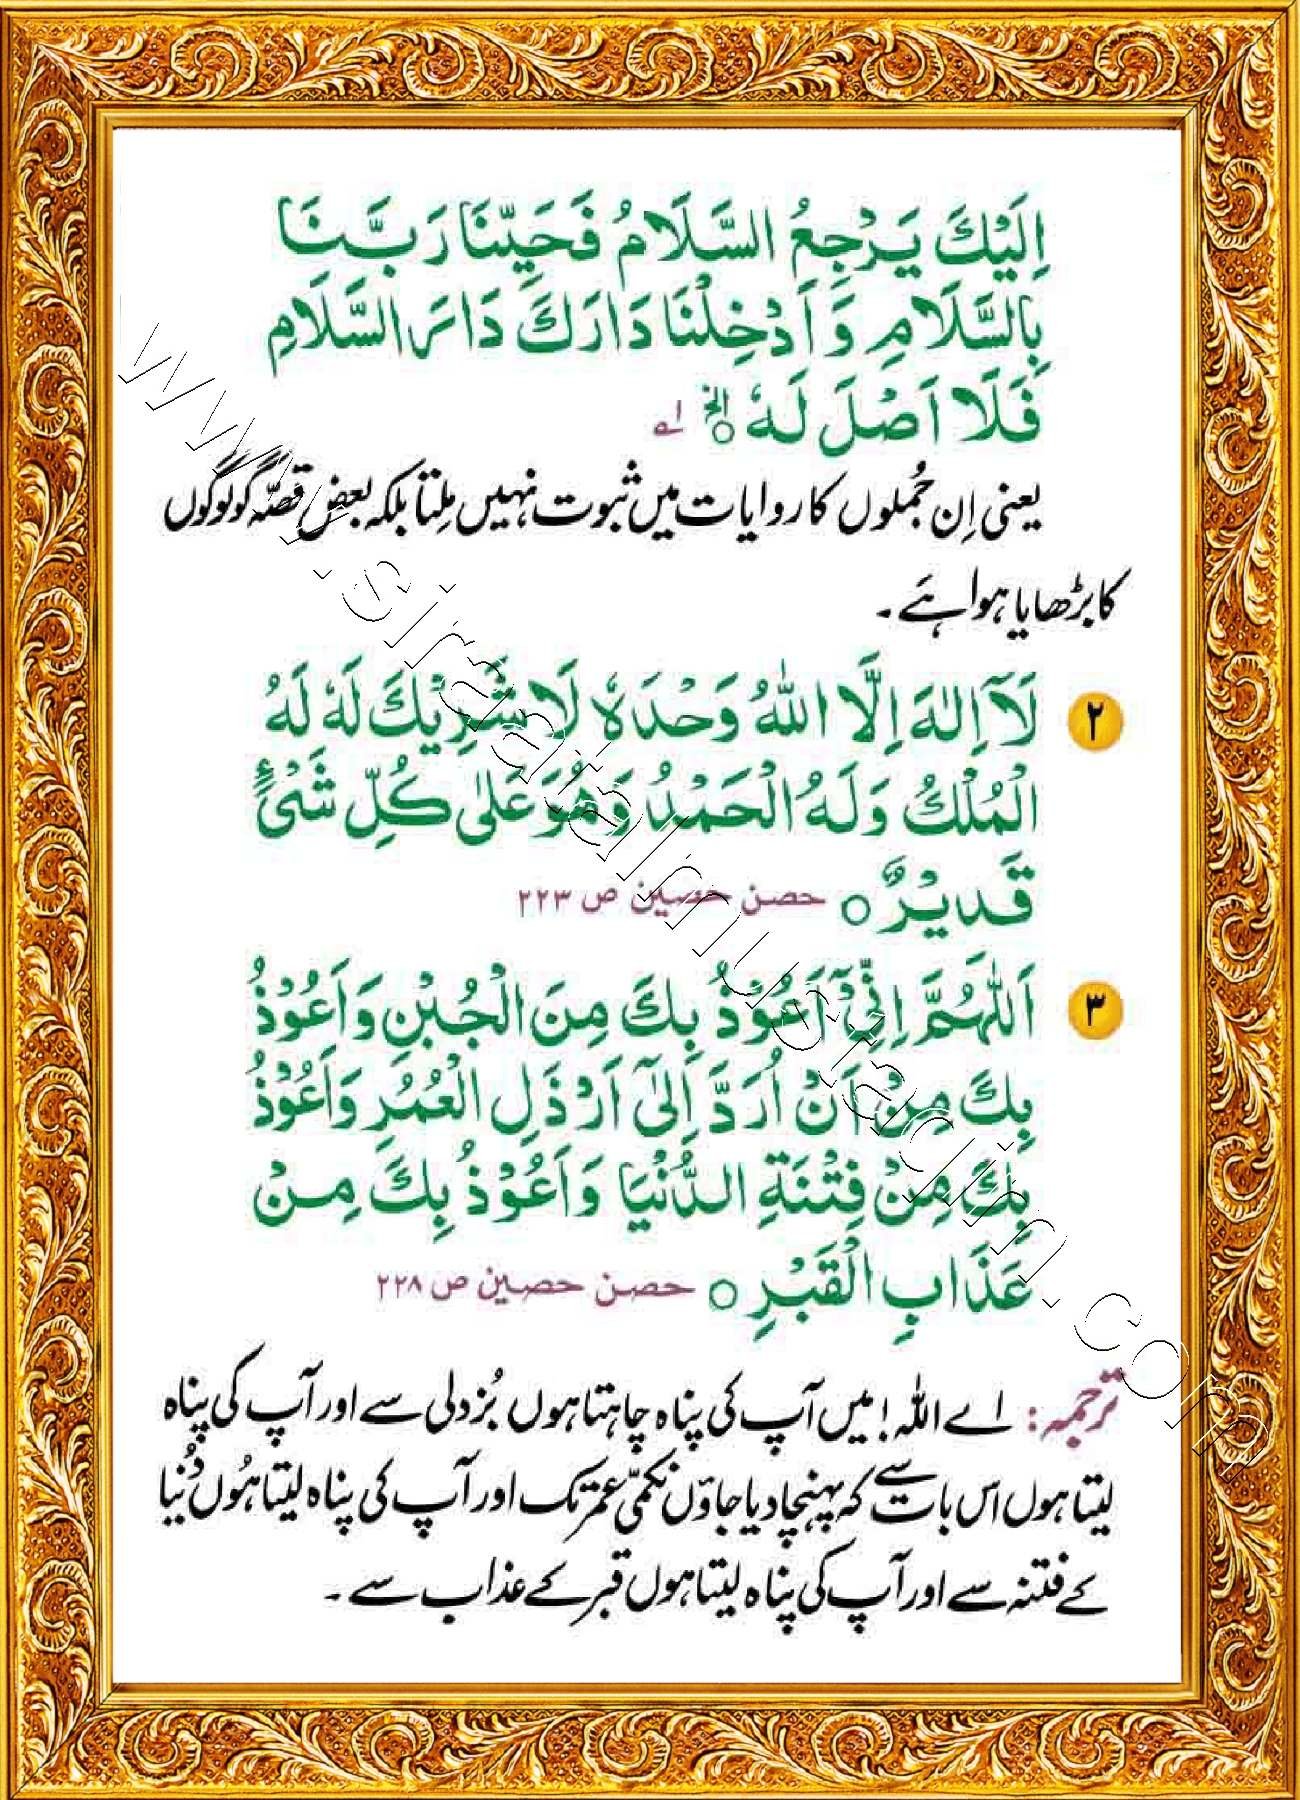 اِلَيْكَ يَرْجِعُ السَّلَامُ فَحَيِّنَا رَبَّنَا
بِالسَّلَامِ وَاَدْخِلْنَا دَارَكَ دَارَ السَّلَامِ
فَلَا اَصْلَ لَهٗ ○ الخ لے
یعنی اِن جُملوں کا روایات میں ثبوت نہیں مِلتا بلکہ بعض قصّہ گو لوگوں
کا بڑھایا ہوا ہے ۔
۲ لَآ اِلٰهَ اِلَّا اللّٰهُ وَحْدَهٗ لَا شَرِيْكَ لَهٗ لَهُ
الْمُلْكُ وَلَهُ الْحَمْدُ وَهُوَ عَلٰى كُلِّ شَىْءٍ
قَدِيْرٌ ○ حصن حصین ص ۲۲۳
۳ اَللّٰهُمَّ اِنِّيْٓ اَعُوْذُ بِكَ مِنَ الْجُبْنِ وَاَعُوْذُ
بِكَ مِنْ اَنْ اُرَدَّ اِلٰٓى اَرْذَلِ الْعُمُرِ وَاَعُوْذُ
بِكَ مِنْ فِتْنَةِ الدُّنْيَا وَاَعُوْذُ بِكَ مِنْ
عَذَابِ الْقَبْرِ ○ حصن حصین ص ۲۲۸
ترجمہ: اے اللہ! میں آپ کی پناہ چاہتا ہوں بُزدلی سے اور آپ کی پناہ
لیتا ہوں اس بات سے کہ پہنچا دیا جاؤں نکمّی عمر تک اور آپ کی پناہ لیتا ہُوں دُنیا
کے فتنہ سے اور آپ کی پناہ لیتا ہوں قبر کے عذاب سے ۔
www.siratalmustaqim.com